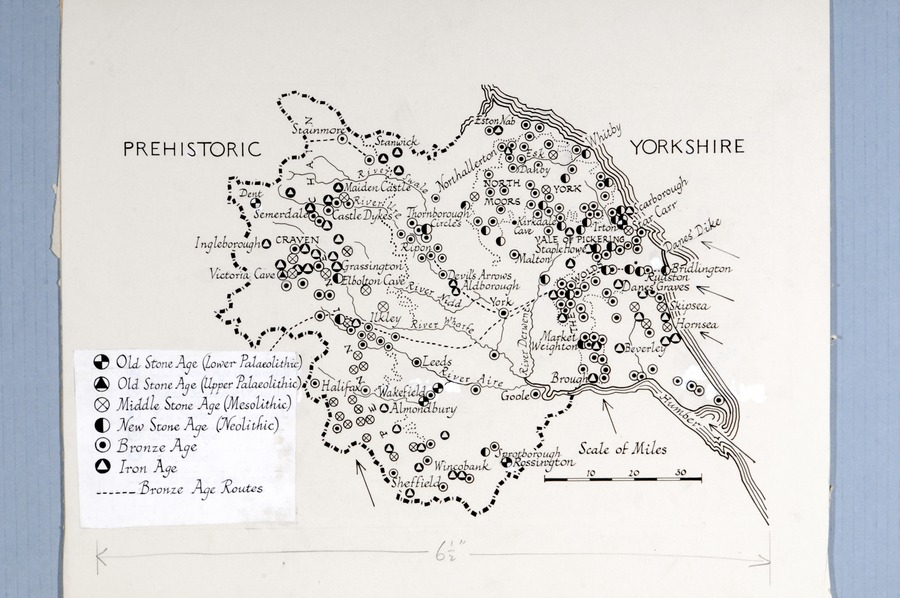 PREHISTORIC
YORKSHIRE
Eston Nab
Whitby
Stainmore
Stanwick
Esk
Danby
Northallerton
River Swale
Maiden Castle
NORTH
YORK
MOORS
Dent
River
Semerdale
Castle Dykes
Thornborough
Circles
Kirkdale
Cave
Irton
Scarborough
Star Carr
Danes' Dike
Ingleborough
CRAVEN
Ripon
VALE OF PICKERING
Staple Howe
Malton
Victoria Cave
Grassington
Elbolton Cave
Devil's Arrows
Aldborough
WOLDS
Bridlington
Rudston
Danes Graves
River Nidd
York
Skipsea
Ilkley
River Wharfe
River Derwent
THE
Hornsea
Market
Weighton
Beverley
Leeds
River Aire
Halifax
Wakefield
Goole
Brough
Humber
Almondbury
Sprotborough
Rossington
Wincobank
Sheffield
Scale of Miles
10 20 30
Old Stone Age (Lower Palaeolithic)
Old Stone Age (Upper Palaeolithic)
Middle Stone Age (Mesolithic)
New Stone Age (Neolithic)
Bronze Age
Iron Age
Bronze Age Routes
6½"